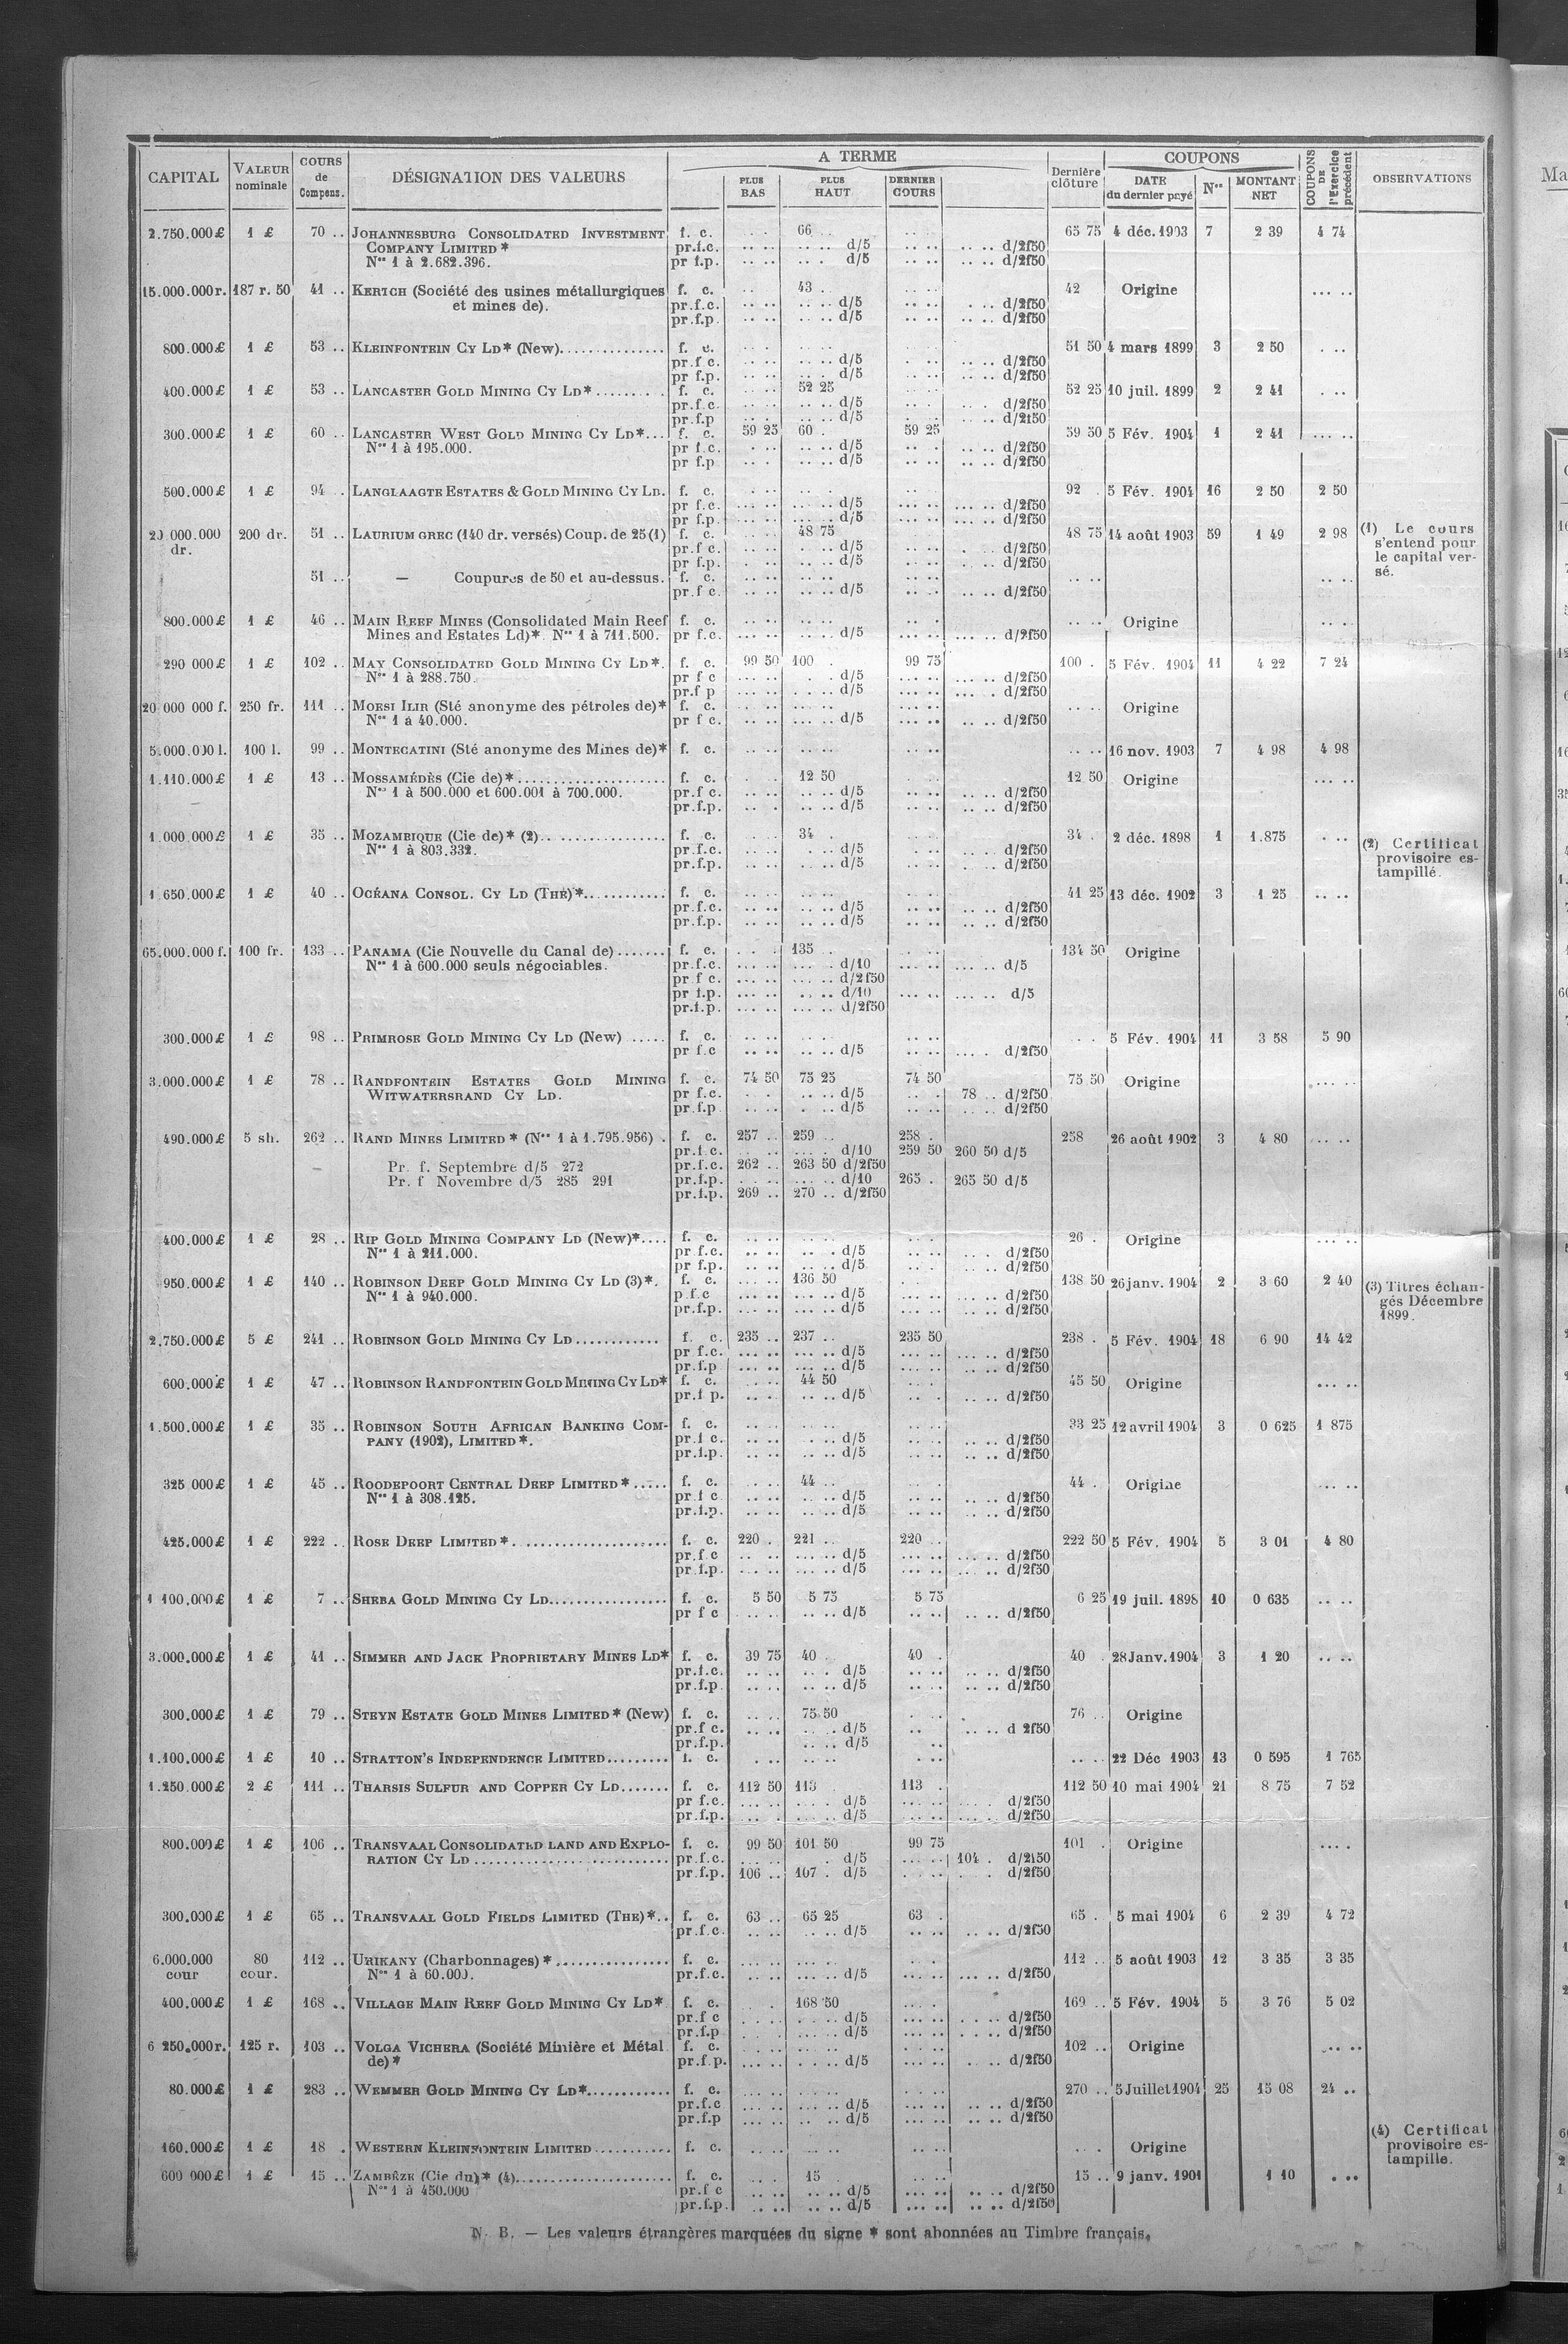 CAPITAL | VALEUR nominale | COURS de Compens. | DÉSIGNATION DES VALEURS | A TERME | PLUS BAS | PLUS HAUT | DERNIER COURS | Dernière clôture | COUPONS | DATE du dernier payé | Nos | MONTANT NET | COUPONS DE l'Exercice précédent | OBSERVATIONS
2.750.000 £ 1 £ 70 .. JOHANNESBURG CONSOLIDATED INVESTMENT f. c. 66 65 75 4 déc. 1903 7 2 39 4 74
COMPANY LIMITED * pr.f.c. d/5 d/2f50
Nos 1 à 2.682.396. pr f.p. d/5 d/2f50
15.000.000 r. 187 r. 50 41 .. KERTCH (Société des usines métallurgiques f. c. 43 . 42 Origine
et mines de). pr.f.c. d/5 d/2f50
pr.f.p. d/5 d/2f50
800.000 £ 1 £ 53 .. KLEINFONTEIN CY LD * (New) f. c. 51 50 4 mars 1899 3 2 50
pr.f c. d/5 d/2f50
pr f.p. d/5 d/2f50
400.000 £ 1 £ 53 .. LANCASTER GOLD MINING CY LD * f. c. 52 25 52 25 10 juil. 1899 2 2 41
pr.f.c. d/5 d/2f50
pr.f.p d/5 d/2f50
300.000 £ 1 £ 60 .. LANCASTER WEST GOLD MINING CY LD * f. c. 59 25 60 . 59 25 59 50 5 Fév. 1904 1 2 41
Nos 1 à 195.000. pr f.c. d/5 d/2f50
pr f.p d/5 d/2f50
500.000 £ 1 £ 94 .. LANGLAAGTE ESTATES & GOLD MINING CY LD. f. c. 92 . 5 Fév. 1904 16 2 50 2 50
pr f.c. d/5 d/2f50
pr f.p. d/5 d/2f50
20 000.000 dr. 200 dr. 51 .. LAURIUM GREC (140 dr. versés) Coup. de 25 (1) f. c. 48 75 48 75 14 août 1903 59 1 49 2 98 (1) Le cours
pr.f c. d/5 d/2f50 s'entend pour
pr f.p. d/5 d/2f50 le capital ver-
51 .. — Coupures de 50 et au-dessus. f. c. sé.
pr.f c. d/5 d/2f50
800.000 £ 1 £ 46 .. MAIN REEF MINES (Consolidated Main Reef f. c. Origine
Mines and Estates Ld) * Nos 1 à 711.500. pr f.c. d/5 d/2f50
290 000 £ 1 £ 102 .. MAY CONSOLIDATED GOLD MINING CY LD *. f. c. 99 50 100 . 99 75 100 . 5 Fév. 1904 11 4 22 7 24
Nos 1 à 288.750. pr f c d/5 d/2f50
pr.f p d/5 d/2f50
20 000 000 f. 250 fr. 111 .. MOESI ILIR (Sté anonyme des pétroles de) * f. c. Origine
Nos 1 à 40.000. pr f c. d/5 d/2f50
5.000.000 l. 100 l. 99 .. MONTECATINI (Sté anonyme des Mines de) * f. c. 16 nov. 1903 7 4 98 4 98
1.110.000 £ 1 £ 13 .. MOSSAMÉDÈS (Cie de) * f. c. 12 50 12 50 Origine
Nos 1 à 500.000 et 600.001 à 700.000. pr.f c. d/5 d/2f50
pr.f.p. d/5 d/2f50
1.000.000 £ 1 £ 35 .. MOZAMBIQUE (Cie de) * (2) f. c. 34 . 34 . 2 déc. 1898 1 1.875 (2) Certificat
Nos 1 à 803.332. pr.f.c. d/5 d/2f50 provisoire es-
pr.f.p. d/5 d/2f50 tampillé.
1 650.000 £ 1 £ 40 .. OCÉANA CONSOL. CY LD (THE) * f. c. 41 25 13 déc. 1902 3 1 25
pr.f.c. d/5 d/2f50
pr.f.p. d/5 d/2f50
65.000.000 f. 100 fr. 133 .. PANAMA (Cie Nouvelle du Canal de) f. c. 135 . 134 50 Origine
Nos 1 à 600.000 seuls négociables. pr.f.c. d/10 d/5
pr f c. d/2f50
pr f.p. d/10 d/5
pr.f.p. d/2f50
300.000 £ 1 £ 98 .. PRIMROSE GOLD MINING CY LD (New) f. c. 5 Fév. 1904 11 3 58 5 90
pr f.c d/5 d/2f50
3.000.000 £ 1 £ 78 .. RANDFONTEIN ESTATES GOLD MINING f. c. 74 50 75 25 74 50 75 50 Origine
WITWATERSRAND CY LD. pr f.c. d/5 78 .. d/2f50
pr.f.p d/5 d/2f50
490.000 £ 5 sh. 262 .. RAND MINES LIMITED * (Nos 1 à 1.795.956) . f. c. 257 .. 259 .. 258 . 258 26 août 1902 3 4 80
pr.f.c. d/10 259 50 260 50 d/5
Pr. f. Septembre d/5 272 pr.f.c. 262 .. 263 50 d/2f50
Pr. f Novembre d/5 285 291 pr.f.p. d/10 265 . 265 50 d/5
pr.f.p. 269 .. 270 .. d/2f50
400.000 £ 1 £ 28 .. RIP GOLD MINING COMPANY LD (New) * f. c. 26 . Origine
Nos 1 à 211.000. pr f.c. d/5 d/2f50
pr f.p. d/5 d/2f50
950.000 £ 1 £ 140 .. ROBINSON DEEP GOLD MINING CY LD (3) *. f. c. 136 50 138 50 26 janv. 1904 2 3 60 2 40 (3) Titres échan-
Nos 1 à 940.000. p.f.c d/5 d/2f50 gés Décembre
pr.f.p. d/5 d/2f50 1899.
2.750.000 £ 5 £ 241 .. ROBINSON GOLD MINING CY LD f. c. 235 .. 237 .. 235 50 238 . 5 Fév. 1904 18 6 90 14 42
pr f.c. d/5 d/2f50
pr.f.p d/5 d/2f50
600.000 £ 1 £ 47 .. ROBINSON RANDFONTEIN GOLD MINING CY LD * f. c. 44 50 45 50 Origine
pr.f p. d/5 d/2f50
1.500.000 £ 1 £ 35 .. ROBINSON SOUTH AFRICAN BANKING COM- f. c. 33 25 12 avril 1904 3 0 625 1 875
PANY (1902), LIMITED *. pr.f c. d/5 d/2f50
pr.f.p. d/5 d/2f50
325 000 £ 1 £ 45 .. ROODEPOORT CENTRAL DEEP LIMITED * f. c. 44 .. 44 . Origine
Nos 1 à 308.125. pr f c d/5 d/2f50
pr.f.p. d/5 d/2f50
425.000 £ 1 £ 222 .. ROSE DEEP LIMITED * f. c. 220 . 221 .. 220 .. 222 50 5 Fév. 1904 5 3 01 4 80
pr.f c d/5 d/2f50
pr.f.p. d/5 d/2f50
1 100.000 £ 1 £ 7 .. SHEBA GOLD MINING CY LD f. c. 5 50 5 75 5 75 6 25 19 juil. 1898 10 0 635
pr f c d/5 d/2f50
3.000.000 £ 1 £ 41 .. SIMMER AND JACK PROPRIETARY MINES LD * f. c. 39 75 40 . 40 . 40 . 28 Janv. 1904 3 1 20
pr.f.c. d/5 d/2f50
pr.f.p d/5 d/2f50
300.000 £ 1 £ 79 .. STEYN ESTATE GOLD MINES LIMITED * (New) f. c. 75.50 76 .. Origine
pr.f c. d/5 d 2f50
pr.f.p. d/5
1.100.000 £ 1 £ 10 .. STRATTON'S INDEPENDENCE LIMITED f. c. 22 Déc 1903 13 0 595 1 765
1.250.000 £ 2 £ 111 .. THARSIS SULFUR AND COPPER CY LD f. c. 112 50 113 . 113 . 112 50 10 mai 1904 21 8 75 7 52
pr f.c. d/5 d/2f50
pr.f.p. d/5 d/2f50
800.000 £ 1 £ 106 .. TRANSVAAL CONSOLIDATED LAND AND EXPLO- f. c. 99 50 101 50 99 75 101 . Origine
RATION CY LD pr.f.c. d/5 104 . d/2f50
pr.f.p. 106 .. 107 . d/5 d/2f50
300.000 £ 1 £ 65 .. TRANSVAAL GOLD FIELDS LIMITED (THE) * f. c. 63 .. 65 25 63 . 65 . 5 mai 1904 6 2 39 4 72
pr.f.c. d/5 d/2f50
6.000.000 cour 80 cour. 112 .. URIKANY (Charbonnages) * f. c. 112 .. 5 août 1903 12 3 35 3 35
Nos 1 à 60.000. pr.f.c. d/5 d/2f50
400.000 £ 1 £ 168 .. VILLAGE MAIN REEF GOLD MINING CY LD * f. c. 168 50 169 .. 5 Fév. 1904 5 3 76 5 02
pr.f c d/5 d/2f50
pr.f.p d/5 d/2f50
6 250.000 r. 125 r. 103 .. VOLGA VICHERA (Société Minière et Métal f. c. 102 .. Origine
de) * pr.f.p. d/5 d/2f50
80.000 £ 1 £ 283 .. WEMMER GOLD MINING CY LD * f. c. 270 .. 5 Juillet 1904 25 15 08 24 ..
pr.f.c d/5 d/2f50
pr.f.p d/5 d/2f50
160.000 £ 1 £ 18 . WESTERN KLEINFONTEIN LIMITED f. c. Origine (4) Certificat
provisoire es-
tampille.
600 000 £ 1 £ 15 .. ZAMBÈZE (Cie du) * (4) f. c. 15 15 .. 9 janv. 1901 1 10
Nos 1 à 450.000 pr.f c d/5 d/2f50
pr.f.p. d/5 d/2f50
N. B. — Les valeurs étrangères marquées du signe * sont abonnées au Timbre français.
Ma